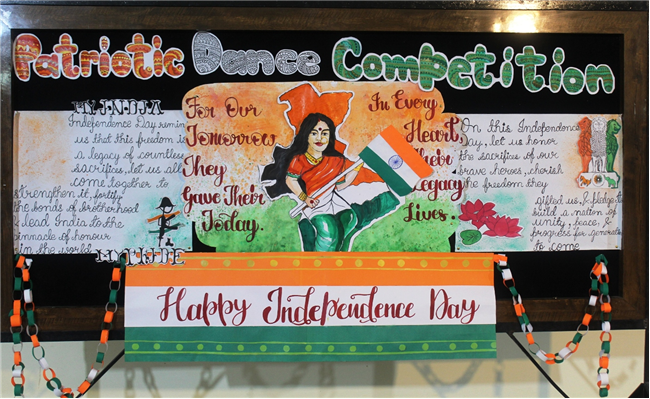 Patriotic Dance Competition
MY INDIA
Independence Day remin
us that this freedom is
a legacy of countless
sacrifices, let us all
come together to
strengthen it, fortify
the bonds of brotherhood
lead India to the
pinnacle of honour
in the world
For Our
Tomorrow
They
Gave Their
Today.
In Every
Heart,
Their
Legacy
Lives.
On this Independence
Day, let us honor
the sacrifices of our
brave heroes, cherish
the freedom they
gifted us, & pledge to
build a nation of
unity, peace, &
progress for generatio
to come
Happy Independence Day